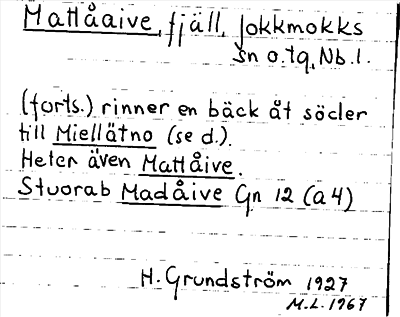 Mattåaive, fjäll, Jokkmokks
sn o. tg, Nb. l.
(forts.) rinner en bäck åt söder
till Miellätno (se d.).
Heter även Mattåive.
Stuorab Madåive Gn 12 (a4)
H. Grundström 1927
M.L. 1967